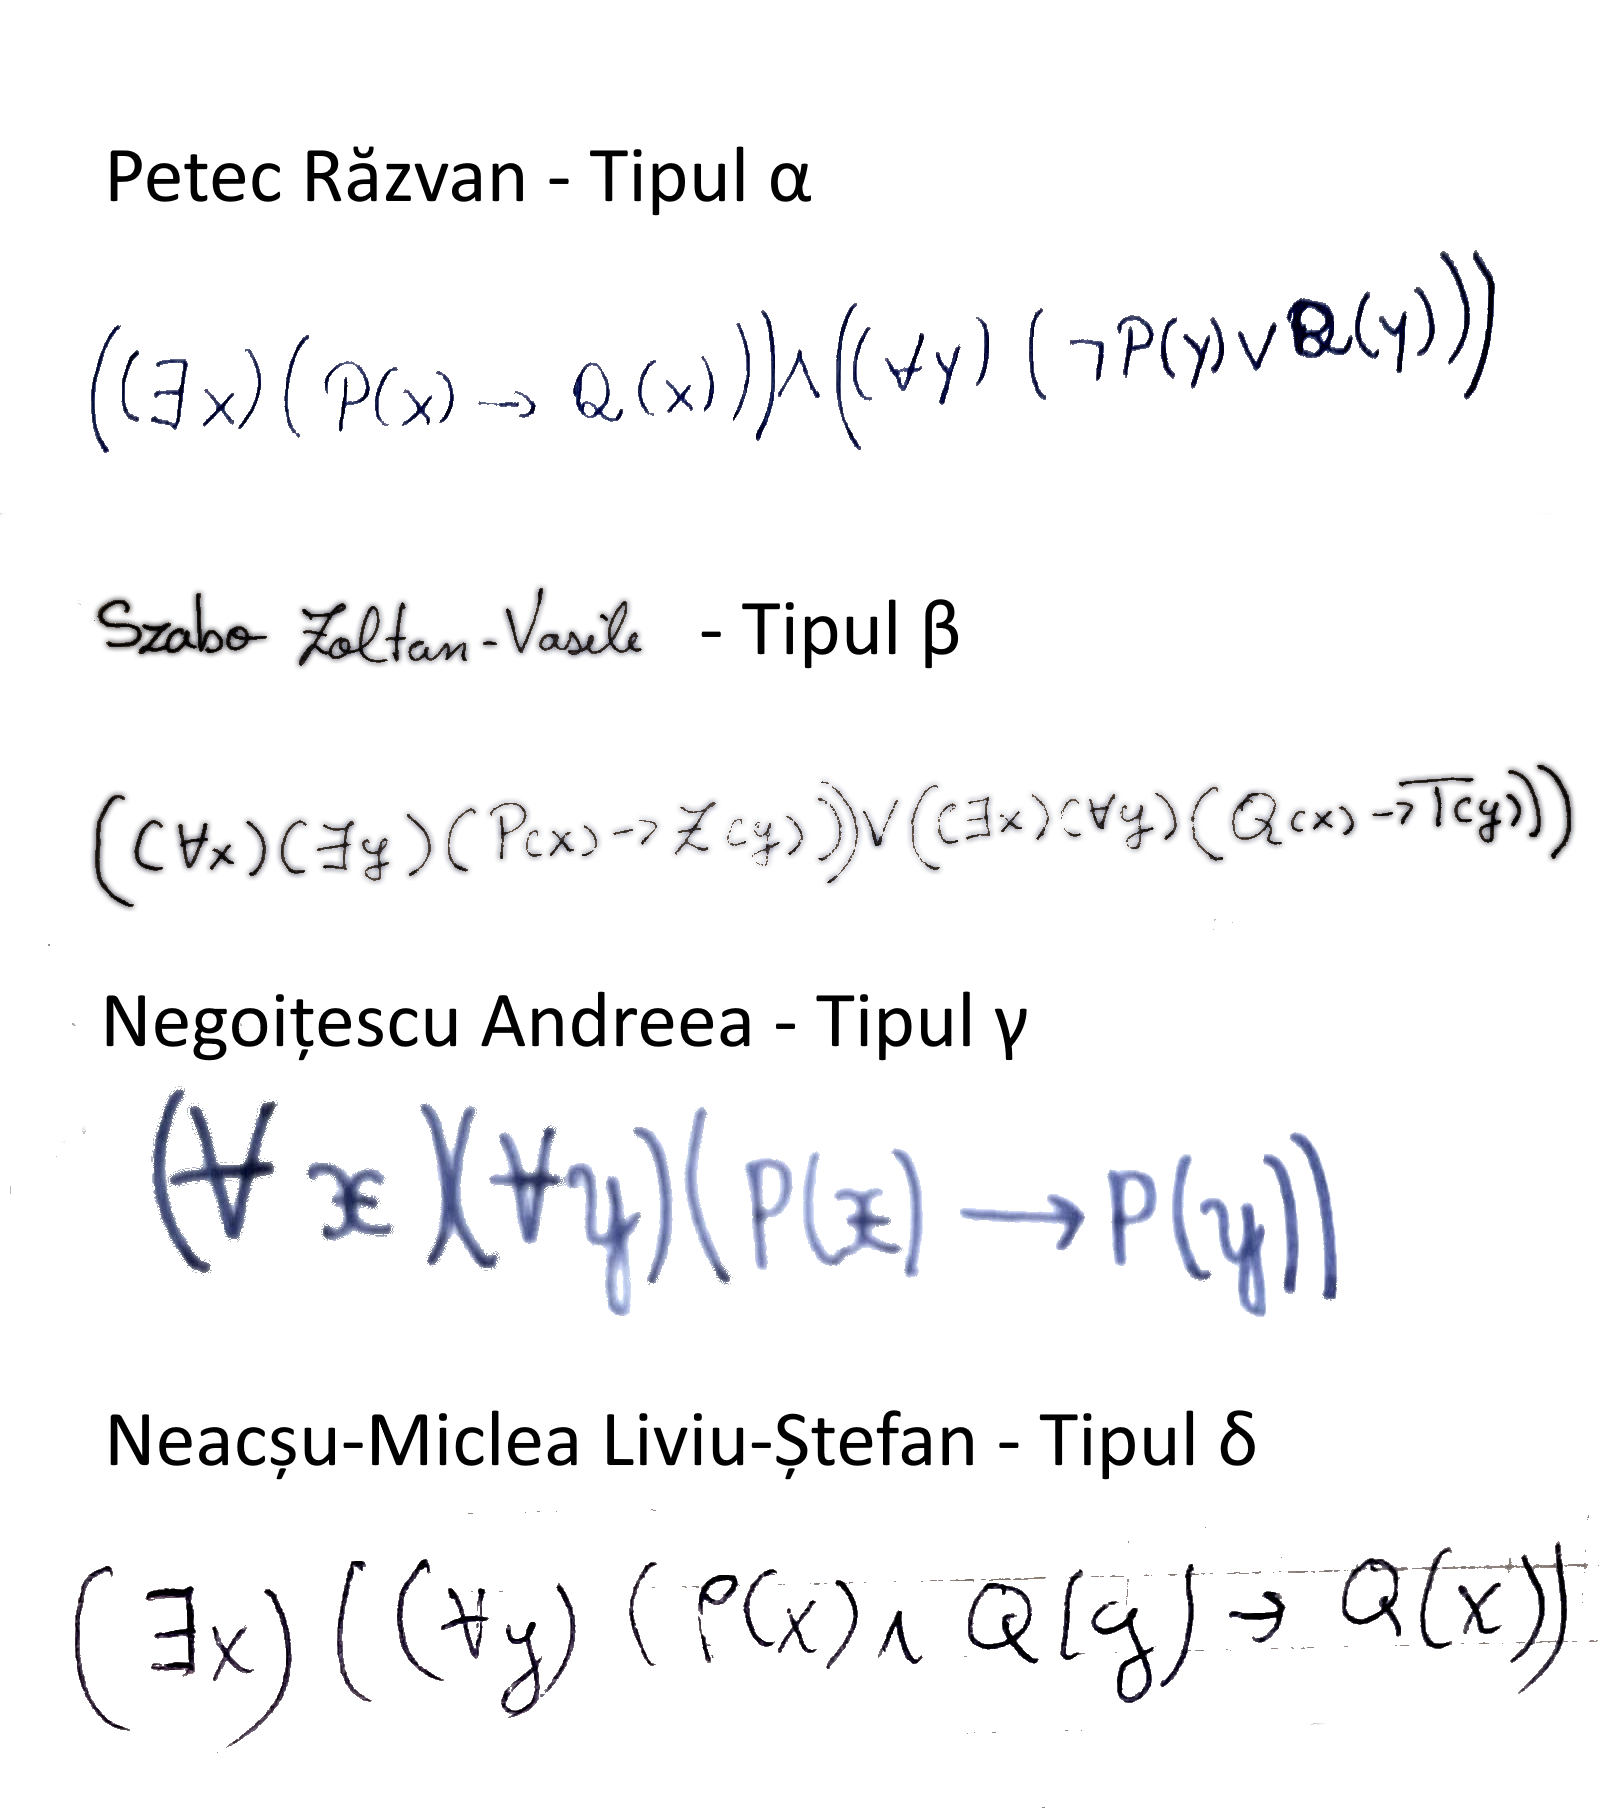 Petec Răzvan - Tipul α
((∃x)(P(x) → Q(x)))∧((∀y) (¬P(y)∨Q(y)))
Szabo Zoltan-Vasile - Tipul β
((∀x)(∃y)(P(x)->Z(y)))∨((∃x)(∀y)(Q(x)->T̅(̅y̅)))
Negoițescu Andreea - Tipul γ
(∀x)(∀y)(P(x) → P(y))
Neacșu-Miclea Liviu-Ștefan - Tipul δ
(∃x)((∀y)(P(x)∧Q(y) → Q(x))